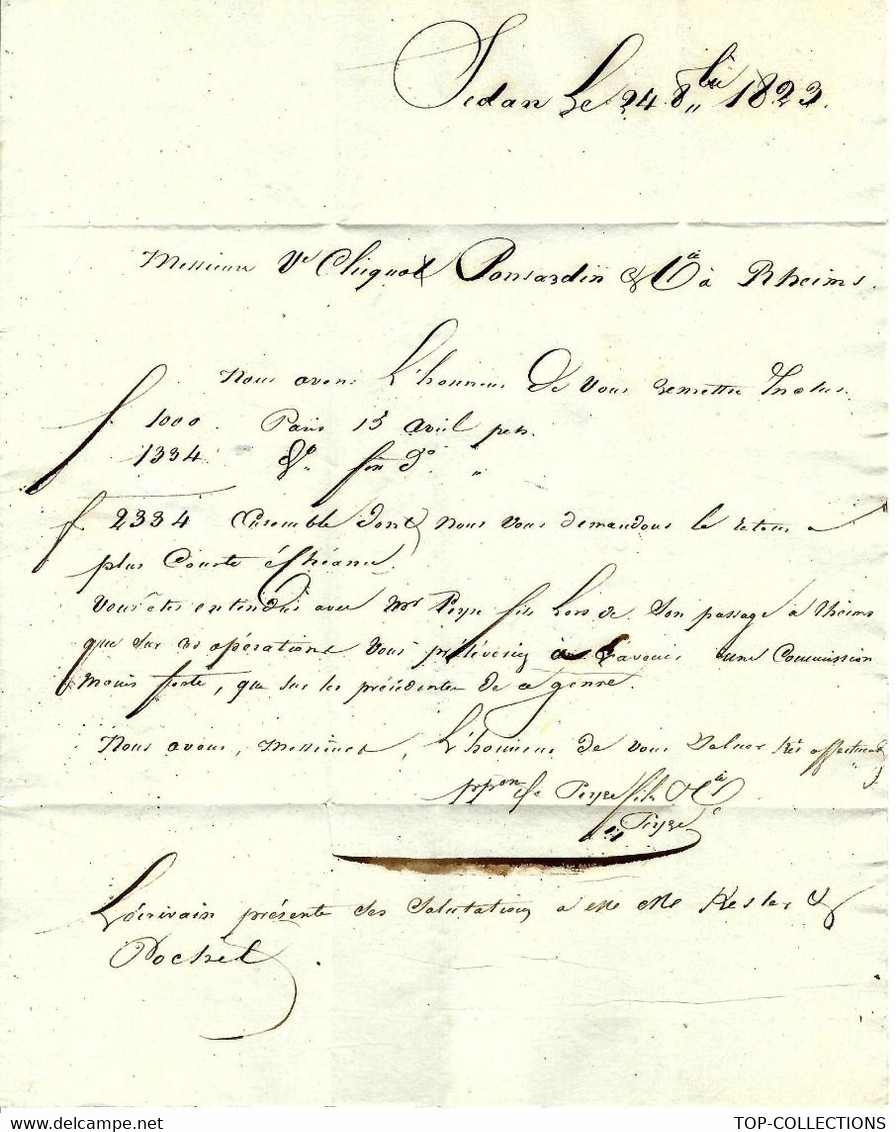 Sedan Le 24 8bre 1823.
Messieurs Ve Cliquot Ponsardin & Cie à Rheims.
Nous avons L'honneur de vous remettre Inclus
f. 1000. Paris 15 avril
1334. do fin do "
f 2334 Ensemble dont nous vous demandons le retour a
plus Courte échéance.
Vous êtes entendus avec Mr Peyre fils Lors de Son passage a Rheims
que sur ces opérations Vous prélèveriez une Commission
moins forte, que sur les précédentes de ce genre.
Nous avons, Messieurs, L'honneur de vous Saluer très affectueust
ppon de Peyre fils & Cie
Peyre
L'écrivain présente ses Salutations a MM Kesler &
Pochet.
TOP-COLLECTIONS